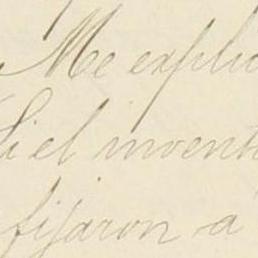 Me expli
Si el invent
fijaron a